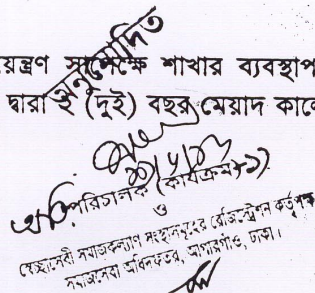 অনুমোদিত
য়ন্ত্রণ সাপেক্ষে শাখার ব্যবস্থাপ
দ্বারা ২ (দুই) বছর মেয়াদ কালে
পরিচালক (কার্যক্রম-১)
ও
স্বেচ্ছাসেবী সমাজকল্যাণ সংস্থাসমূহের রেজিস্ট্রেশন কর্তৃপক্ষ
সমাজসেবা অধিদফতর, আগারগাঁও, ঢাকা।